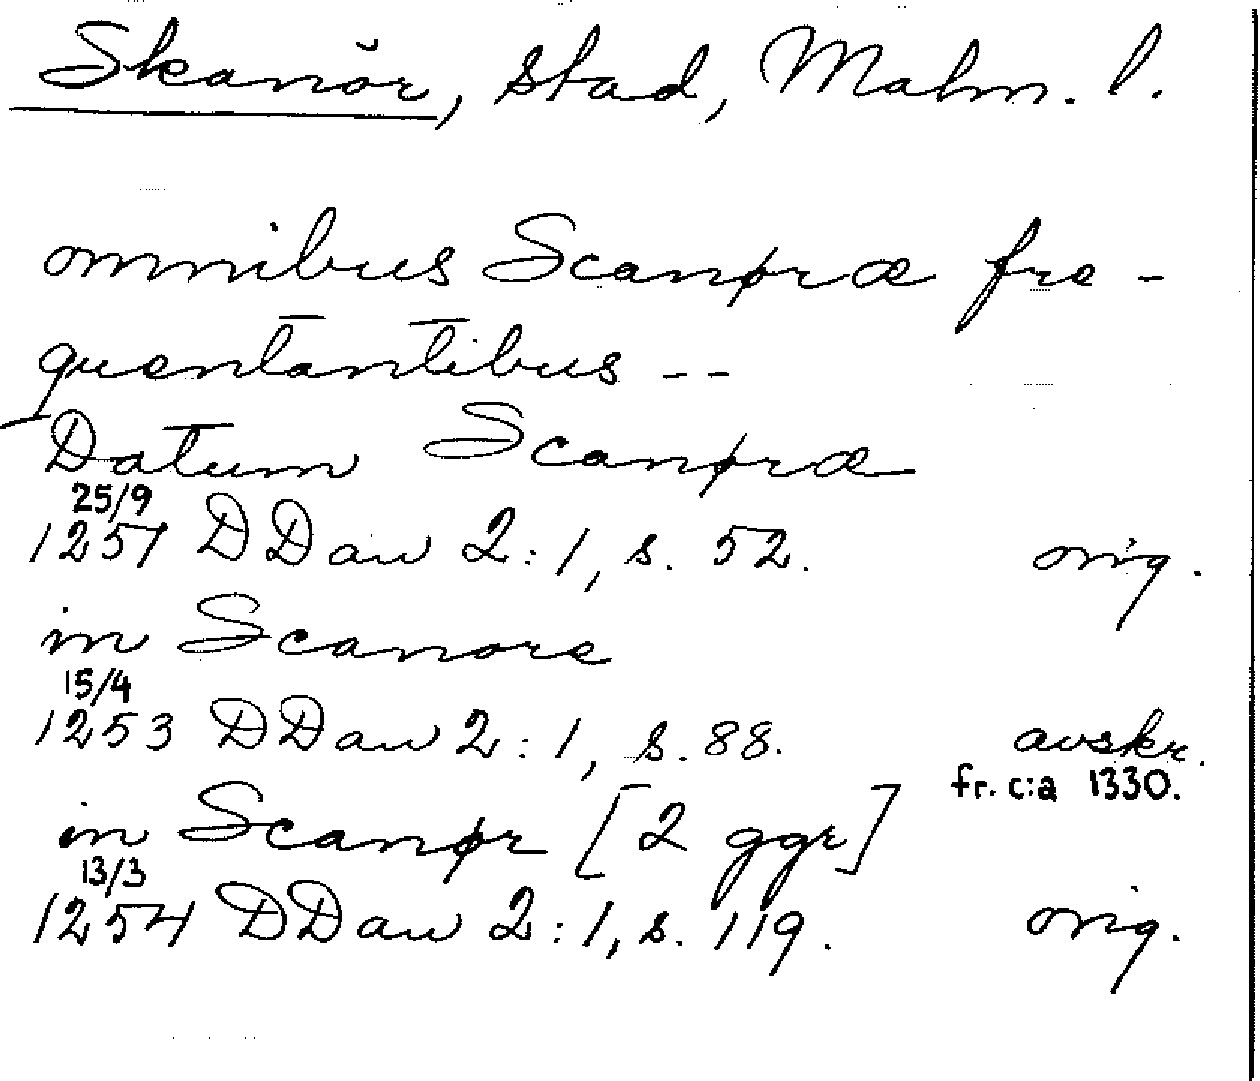 Skanör, stad, Malm. l.
omnibus Scanøræ fre-
quentantibus --
Datum Scanøræ
25/9
1251 DDan 2:1, s. 52. orig.
in Scanore
15/4
1253 DDan 2:1, s. 88. avskr.
fr. c:a 1330.
in Scanør [2 ggr]
13/3
1254 DDan 2:1, s. 119. orig.